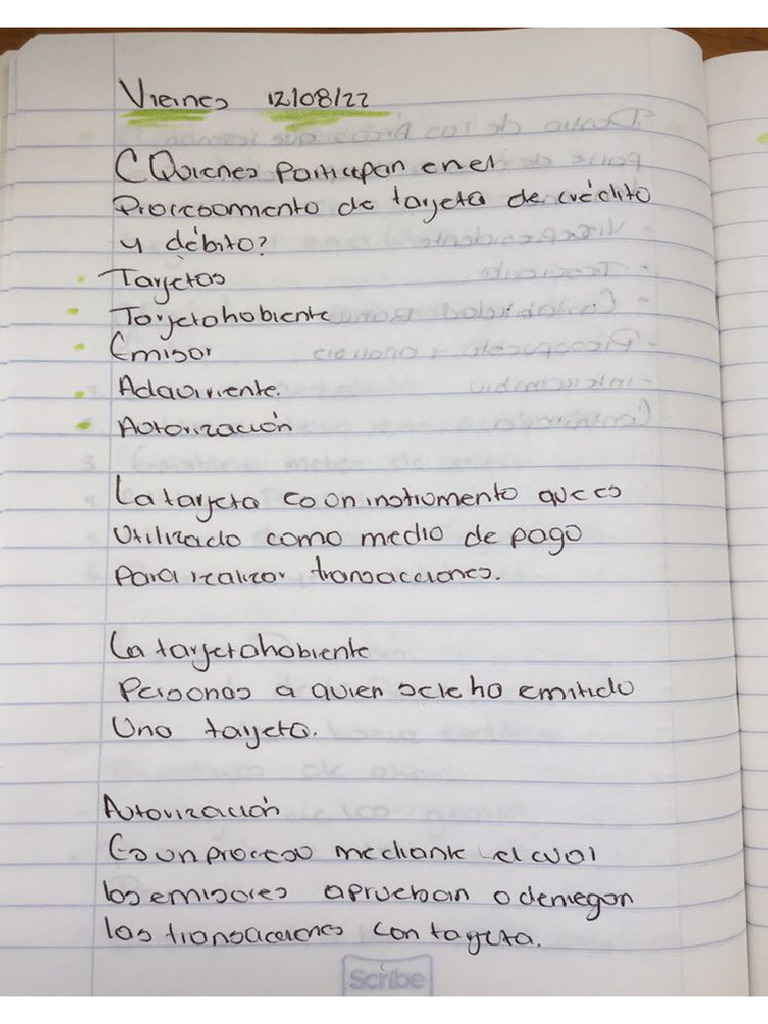 Viernes 12/08/22
¿Quienes participan en el
Procesamiento de tarjeta de crédito
y débito?
Tarjetas
Tarjetahabiente
Emisor
Adquiriente.
Autorización
La tarjeta es un instrumento que es
Utilizado como medio de pago
Para realizar transacciones.
La tarjetahabiente
Personas a quien se le ha emitido
Una tarjeta.
Autorización
Es un proceso mediante el cual
los emisores aprueban o deniegan
las transacciones con tarjeta.
Scribe